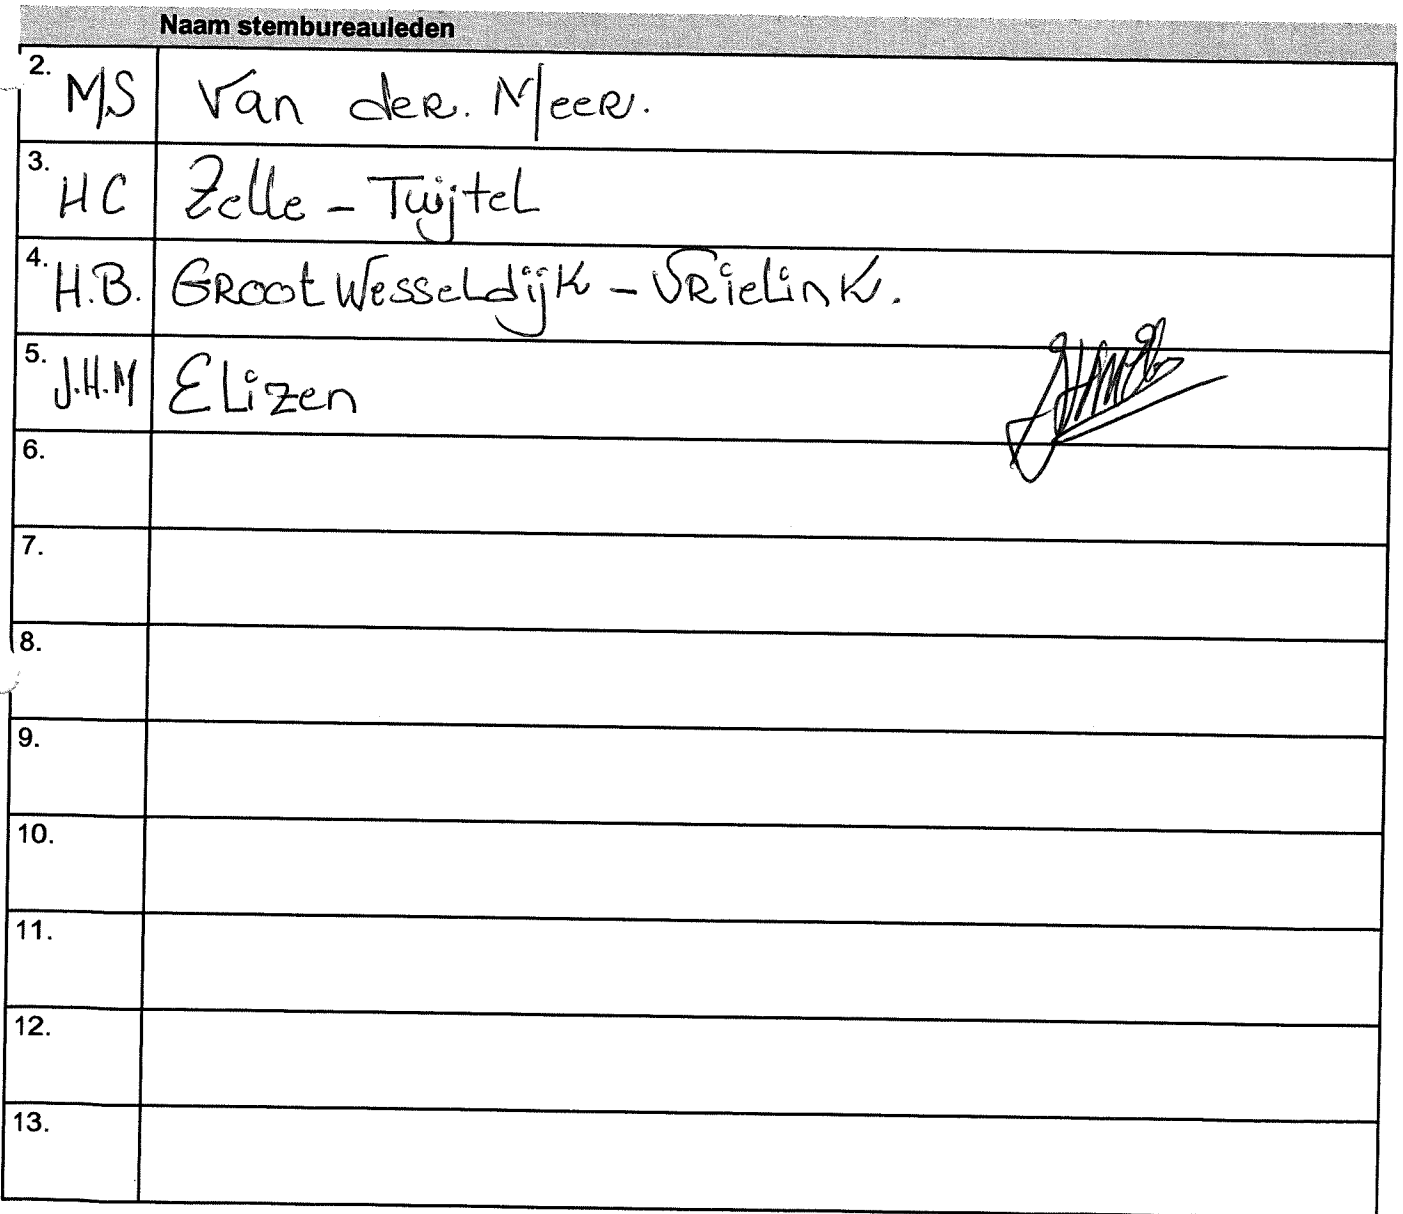 Naam stembureauleden
2. MS Van der. Meer.
3. HC Zelle - Tuijtel
4. H.B. Groot Wesseldijk - Vrielink.
5. J.H.M Elizen
6.
7.
8.
9.
10.
11.
12.
13.